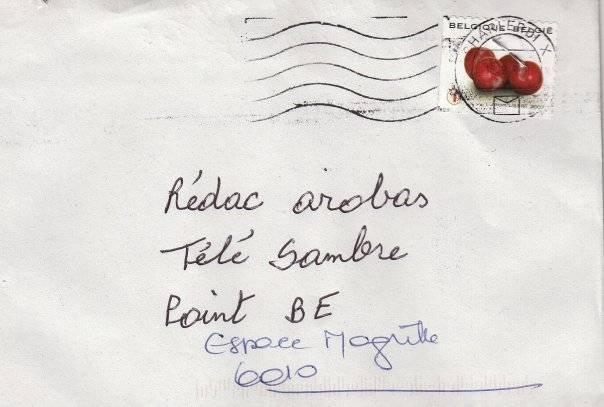 BELGIQUE BELGIË
CHARLEROI X
Rédac arobas
Télé Sambre
Point BE
Espace Magritte
6010